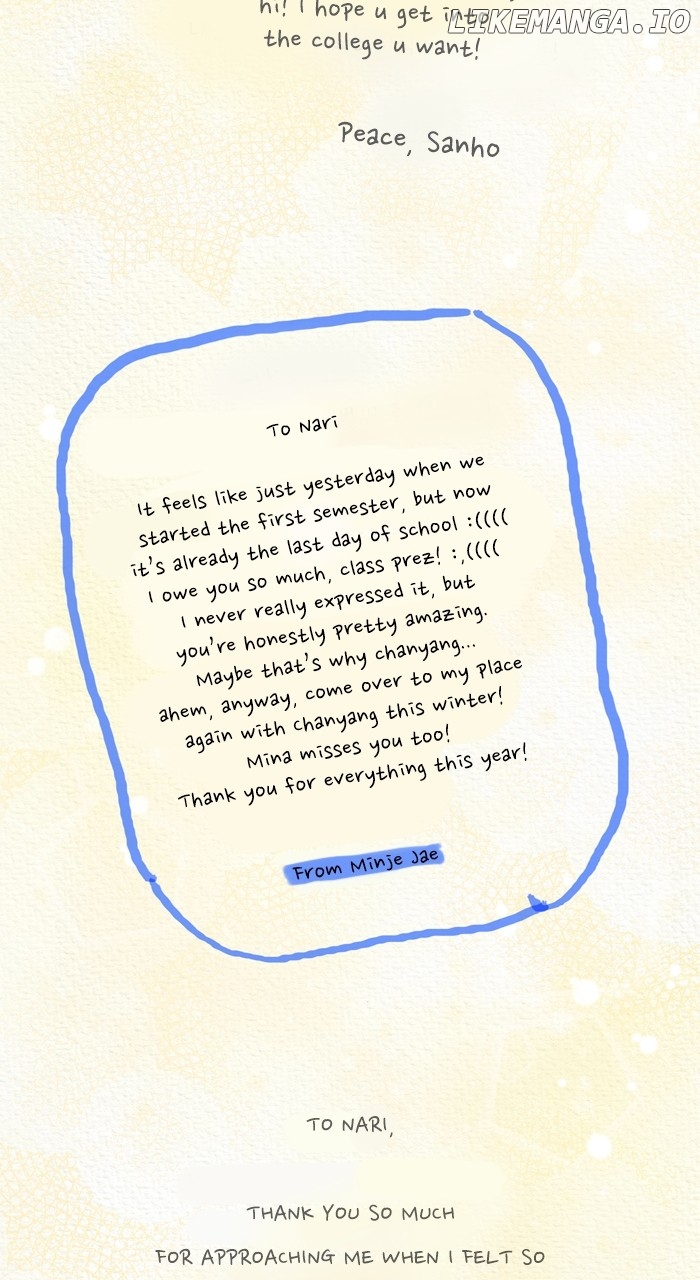 hi! I hope u get into
LIKEMANGA.IO
the college u want!
Peace, Sanho
To Nari
It feels like just yesterday when we
started the first semester, but now
it's already the last day of school :((((
I owe you so much, class prez! :,((((
I never really expressed it, but
you're honestly pretty amazing.
Maybe that's why chanyang...
ahem, anyway, come over to my place
again with chanyang this winter!
Mina misses you too!
Thank you for everything this year!
From Minje Jae
TO NARI,
THANK YOU SO MUCH
FOR APPROACHING ME WHEN I FELT SO